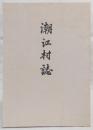 潮江村誌